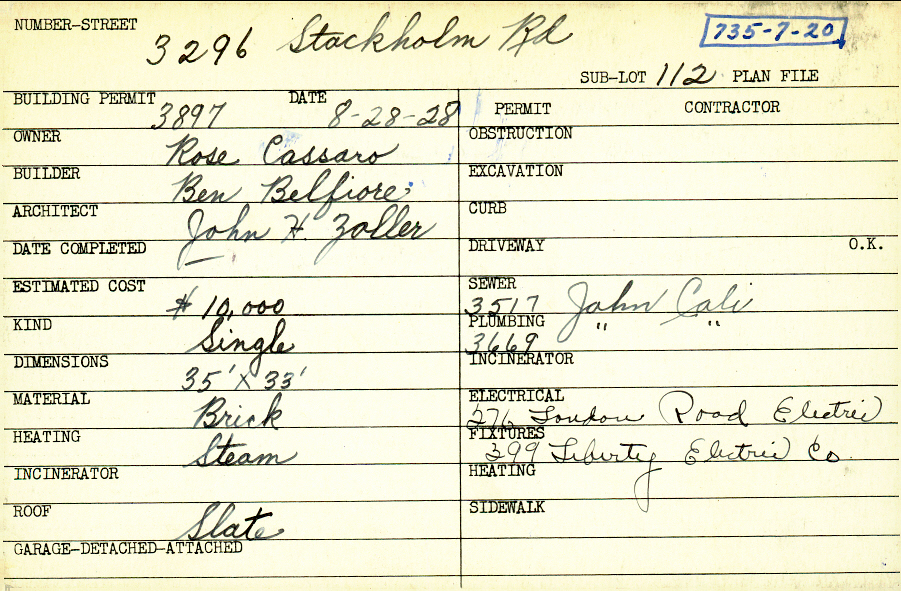 NUMBER-STREET 3296 Stockholm Rd 735-7-20
SUB-LOT 112 PLAN FILE
BUILDING PERMIT 3897 DATE 8-28-28
OWNER Rose Cassaro
BUILDER Ben Belfiore
ARCHITECT John H. Zoller
DATE COMPLETED —
ESTIMATED COST $10,000
KIND Single
DIMENSIONS 35' X 33'
MATERIAL Brick
HEATING Steam
INCINERATOR
ROOF Slate
GARAGE-DETACHED-ATTACHED
PERMIT CONTRACTOR
OBSTRUCTION
EXCAVATION
CURB
DRIVEWAY O.K.
SEWER 3517 John Cali
PLUMBING 3669 " "
INCINERATOR
ELECTRICAL 276 London Road Electric
FIXTURES 399 Liberty Electric Co
HEATING
SIDEWALK